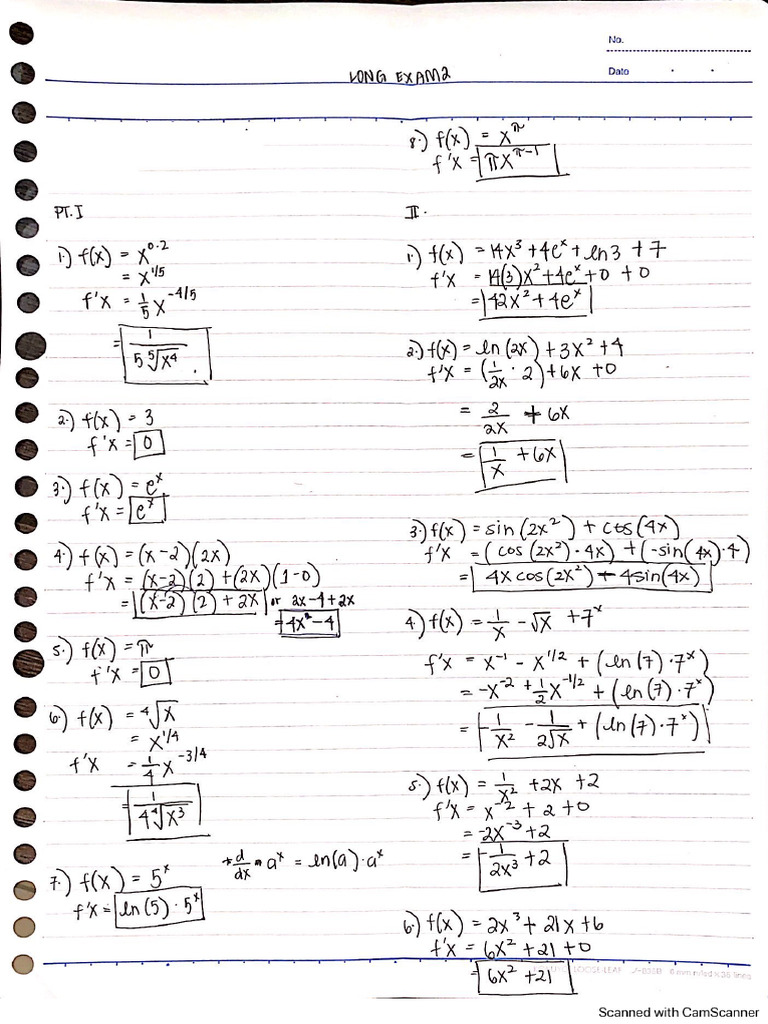 No.
Date
LONG EXAM 2
PT. I
1.) f(x) = x^0.2
= x^1/5
f'x = 1/5 x^-4/5
= 1/(5 ⁵√x⁴)
2.) f(x) = 3
f'x = 0
3.) f(x) = e^x
f'x = e^x
4.) f(x) = (x-2)(2x)
f'x = (x-2)(2) + (2x)(1-0)
= (x-2)(2) + 2x or 2x-4+2x
= 4x-4
5.) f(x) = π
f'x = 0
6.) f(x) = ⁴√x
= x^1/4
f'x = 1/4 x^-3/4
= 1/(4 ⁴√x³)
7.) f(x) = 5^x * d/dx a^x = ln(a) · a^x
f'x = ln(5) · 5^x
8.) f(x) = x^π
f'x = πx^π-1
II.
1.) f(x) = 14x³ + 4e^x + ln 3 + 7
f'x = 14(3)x² + 4e^x + 0 + 0
= 42x² + 4e^x
2.) f(x) = ln(2x) + 3x² + 4
f'x = (1/2x · 2) + 6x + 0
= 2/2x + 6x
= 1/x + 6x
3.) f(x) = sin(2x²) + cos(4x)
f'x = (cos(2x²) · 4x) + (-sin(4x) · 4)
= 4x cos(2x²) - 4sin(4x)
4.) f(x) = 1/x - √x + 7^x
f'x = x^-1 - x^1/2 + (ln(7) · 7^x)
= -x^-2 + 1/2 x^-1/2 + (ln(7) · 7^x)
= -1/x² - 1/(2√x) + (ln(7) · 7^x)
5.) f(x) = 1/x² + 2x + 2
f'x = x^-2 + 2 + 0
= -2x^-3 + 2
= -1/2x³ + 2
6.) f(x) = 2x³ + 21x + 6
f'x = 6x² + 21 + 0
= 6x² + 21
LOOSE-LEAF
Scanned with CamScanner